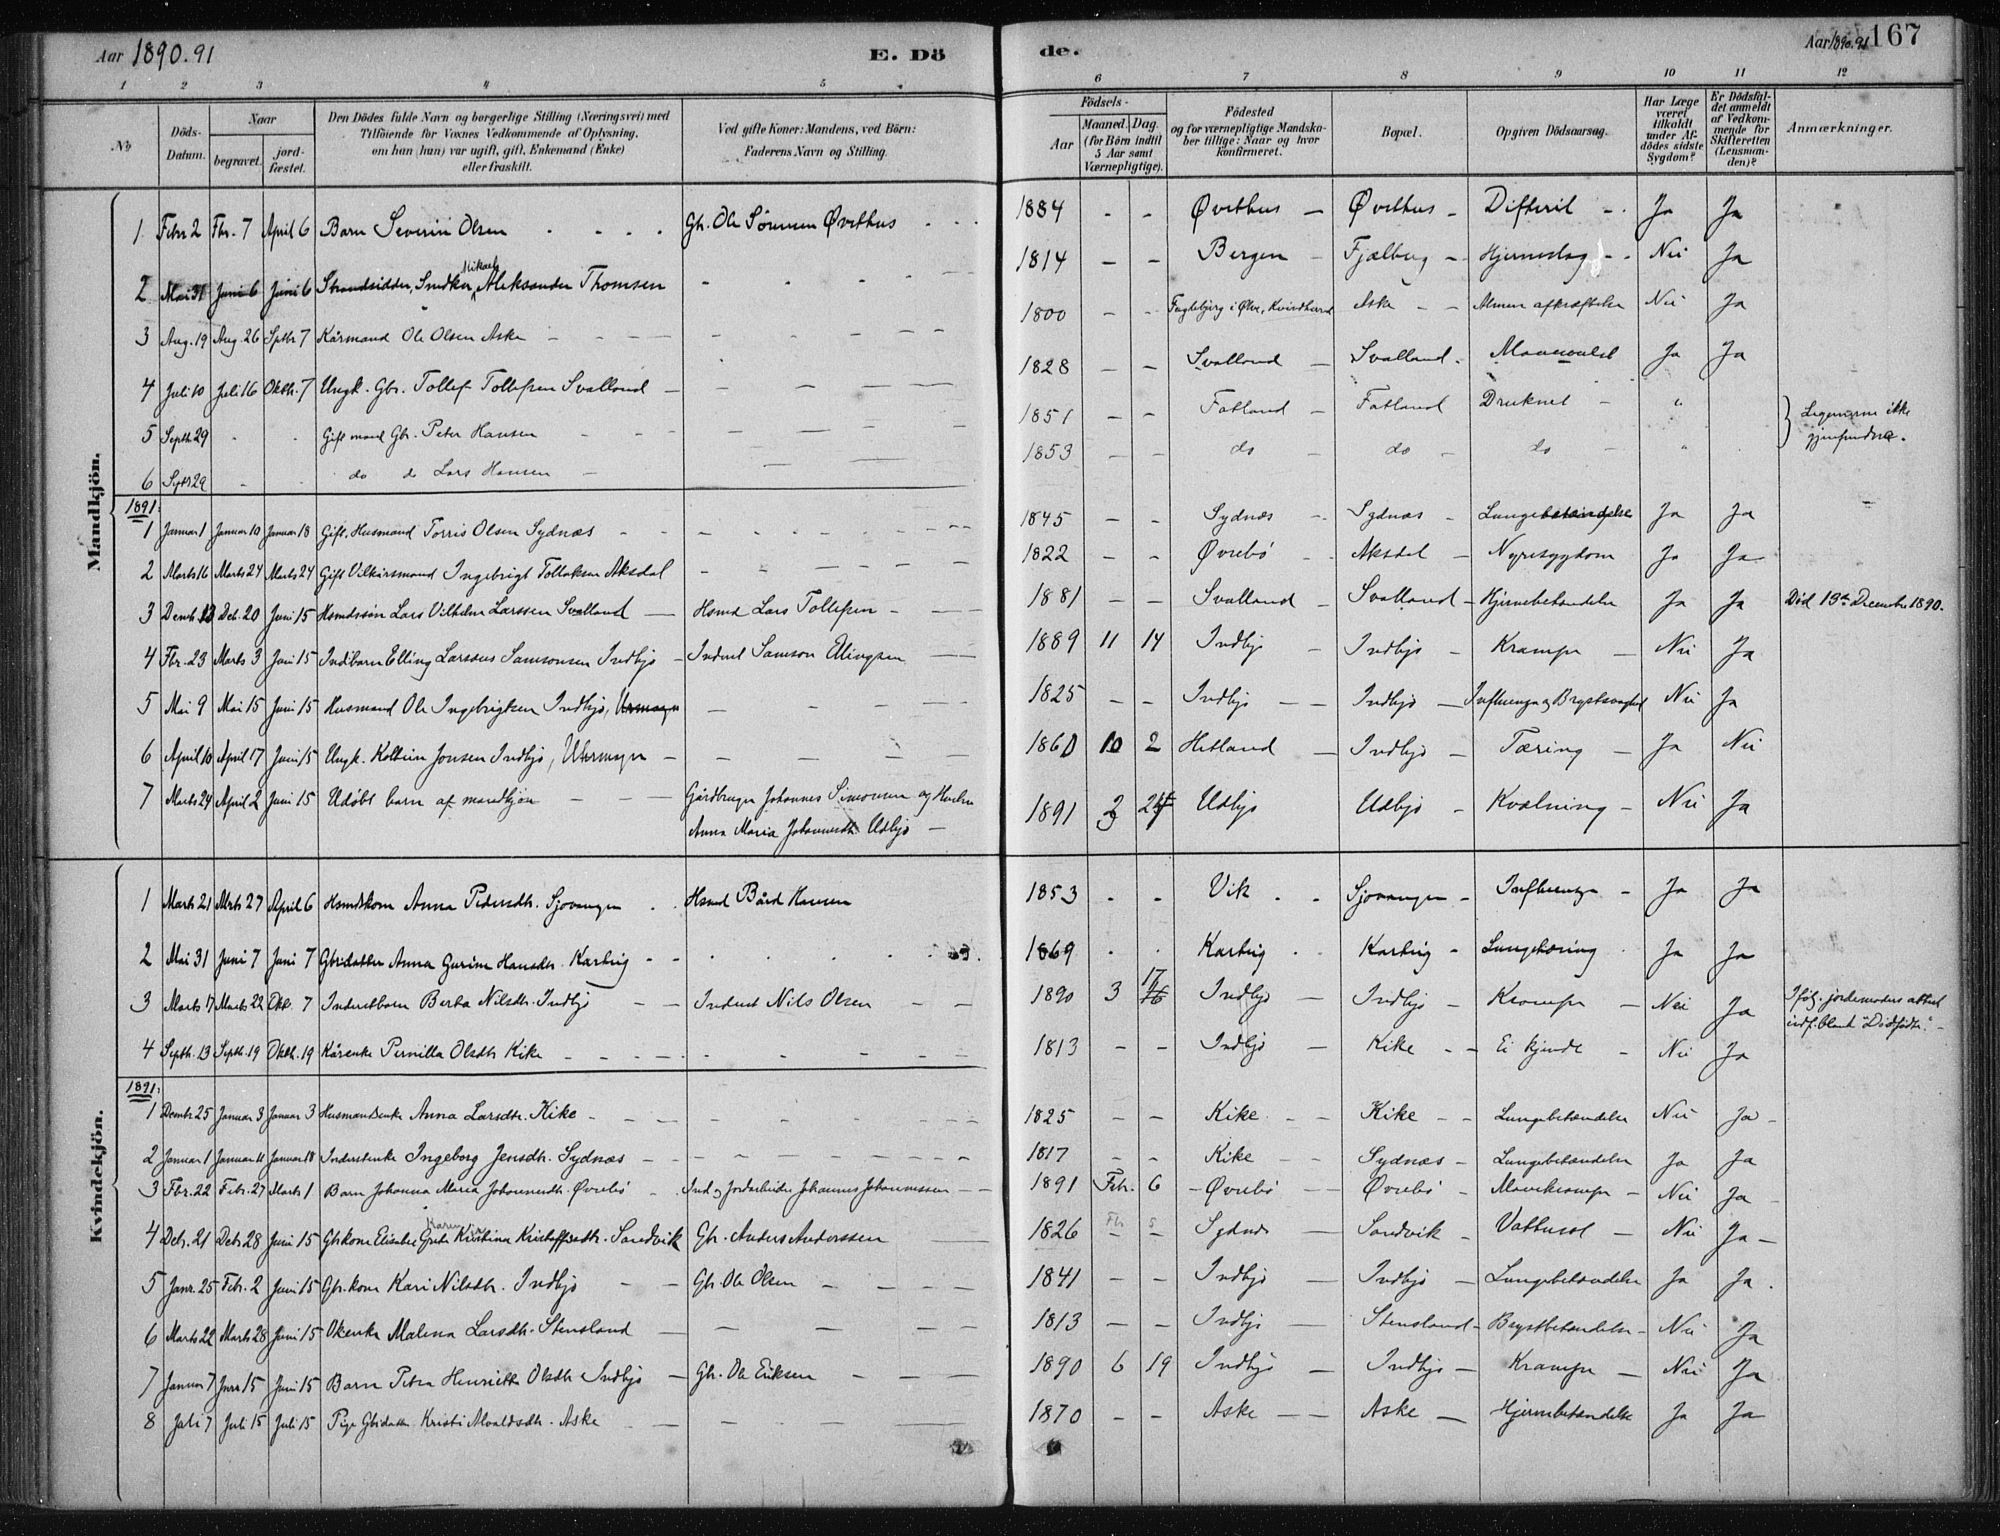 Aar 1890.91
E. Dö
de.
Aar 1890.91 167
1 2 3 4 5 6 7 8 9 10 11 12
No
Döds-Datum.
Naar
begravet.
jord-fæstet.
Den Dödes fulde Navn og borgerlige Stilling (Næringsvei) med
Tilföiende for Voxnes Vedkommende af Oplysning,
om han (hun) var ugift, gift, Enkemand (Enke)
eller fraskilt.
Ved gifte Koner: Mandens, ved Börn:
Faderens Navn og Stilling.
Födsels-
Aar
Maaned. Dag.
(for Börn indtil
5 Aar samt
Værnepligtige).
Födested
og for værnepligtige Mandska-
ber tillige: Naar og hvor
konfirmeret.
Bopæl.
Opgiven Dödsaarsag.
Har Læge
været
tilkaldt
under Af-
dödes sidste
Sygdom?
Er Dödsfal-
det anmeldt
af Vedkom-
mende for
Skifteretten
(Lensman-
den)?
Anmærkninger.
Mandkjön.
1 Febr 2 Fbr. 7 April 6 Barn Severin Olsen Gbr. Ole Sörensen Øvsthus 1884 - - Øvsthus - Øvsthus - Difterit - Ja Ja
2 Mai 31 Juni 6 Juni 6 Strandsidder, Snedker, Mikael Aleksander Thomsen 1814 - - Bergen - Fjælberg - Hjerneslag - Nei Ja
3 Aug. 19 Aug. 26 Septbr 7 Kårmand Ole Olsen Aske 1800 - - i Ølve, Kvindherred Aske - - Almen afkræftelse Nei Ja
4 Juli 10 Juli 16 Oktbr. 7 Ungk. Gbr. Tollef Tollefsen Svalland 1828 - - Svalland - Svalland - Ja Ja
5 Septbr 29 Gift mand Gbr. Peter Hansen 1851 - - Fatland - Fatland Druknet - "
6 Septbr 29 do do Lars Hansen 1853 - - do - do - do - "
} Ligene ikke
gjenfundne.
1891:
1 Januar 1 Januar 10 Januar 18 Gift. Husmand Torris Olsen Sydnæs 1845 - - Sydnæs - Sydnæs - Lungebetændelse Ja Ja
2 Marts 16 Marts 24 Marts 24 Gift Vilkårsmand Ingebrigt Tollaksen Aksdal 1822 - - Øvrebö - Aksdal - Nyresygdom Ja Ja
3 Dembr. 13 Deb. 20 Juni 15 Hsmdssön Lars Vilhelm Larssen Svalland - Hsmd Lars Tollefsen 1881 - - Svalland - Svalland - Hjernebetændelse Ja Ja Död 13de December 1890.
4 Fbr. 23 Marts 3 Juni 15 Indibarn Elling Larsæus Samsonsen Indbjo - Inderst Samson Ellingsen 1889 11 14 Indbjo - Indbjo - Krampe - Nei Ja
5 Mai 9 Mai 15 Juni 15 Husmand Ole Ingebrigtsen Indbjo, Uhrmager 1825 - - Indbjo - Indbjo - Influenza og Brystsvaghed Nei Ja
6 April 10 April 17 Juni 15 Ungk. Kolbein Jonsen Indbjo, Uhrmager 1860 10 2 Hetland - Indbjo - Tæring - Ja Nei
7 Marts 24 April 2 Juni 15 Udöbt barn af mandkjön Gårdbruger Johannes Simonsen og Hustru
Anna Maria Johannesdtr Udbjo - 1891 3 24 Udbjo Udbjo - Kvælning - Nei Ja
Kvindekjön.
1 Marts 21 Mrts 27 April 6 Hsmdskone Anna Pedersdtr. Sjovangen Hsmd Bård Hansen 1853 Vik Sjovangen - Influenza - Ja Ja
2 Mai 31 Juni 7 Juni 7 Gbrsdatter Anna Gurine Hansdtr. Kartvig 1869 Kartvig Kartvig - Lungetæring Ja Ja
3 Marts 17 Marts 22 Okt. 7 Inderstbarn Berta Nilsdtr. Indbjo Inderst Nils Olsen 1890 3 17 16 Indbjo - Indbjo - Krampe - Nei Ja Ifölg. jordemoders attest
indf. blandt "Dödfödte". -
4 Septbr. 13 Septbr. 19 Oktbr. 19 Kårenke Pernilla Olsdtr Kike 1813 - - Indbjo - Kike - - Ei kjendt - Nei Ja
1891:
1 Dembr 25 Januar 3 Januar 3 Husmandsenke Anna Larsdtr. Kike 1825 - - Kike - Kike - - Lungebetændelse Nei Ja
2 Januar 1 Januar 11 Januar 18 Inderstenke Ingeborg Jensdtr. Sydnæs 1817 - - Kike - Sydnæs - Lungebetændelse Ja Ja
3 Fbr. 22 Febr. 27 Marts 1 Barn Johanna Maria Johannesdtr. Øvrebö - Ind. og Jordarbeider Johannes Johannessen 1891 Febr. 6 - Øvrebö - Øvrebö - Mavekrampe - Nei Ja
4 Deb. 21 Debr 28 Juni 15 Gbrkone Elisabet Grete Karen Kristina Kristoffersdtr. Sandvik Gbr. Anders Anderssen 1826 Fbr 5 - - Sydnæs - Sandvik - Vattersot - Nei Ja
5 Janr. 25 Febr. 2 Juni 15 Gbr. kone Kari Nilsdtr. Indbjo Gbr. Ole Olsen 1841 - - Indbjo - Indbjo - Lungebetændelse Ja Ja
6 Marts 22 Marts 28 Juni 15 Okenke Malena Larsdtr. Stensland 1813 - - Indbjo - Stensland - Brystbetændelse - Nei Ja
7 Januar 7 Janr 15 Juni 15 Barn Petra Henriette Olsdtr Indbjo - Gbr. Ole Eriksen 1890 6 19 Indbjo - Indbjo - Krampe - Nei Ja
8 Juli 7 Juli 15 Juli 15 Pige Gbrdatter Kristi Alvaldsdtr. Aske 1870 - - Aske - - Aske - Hjernebetændelse Ja Ja